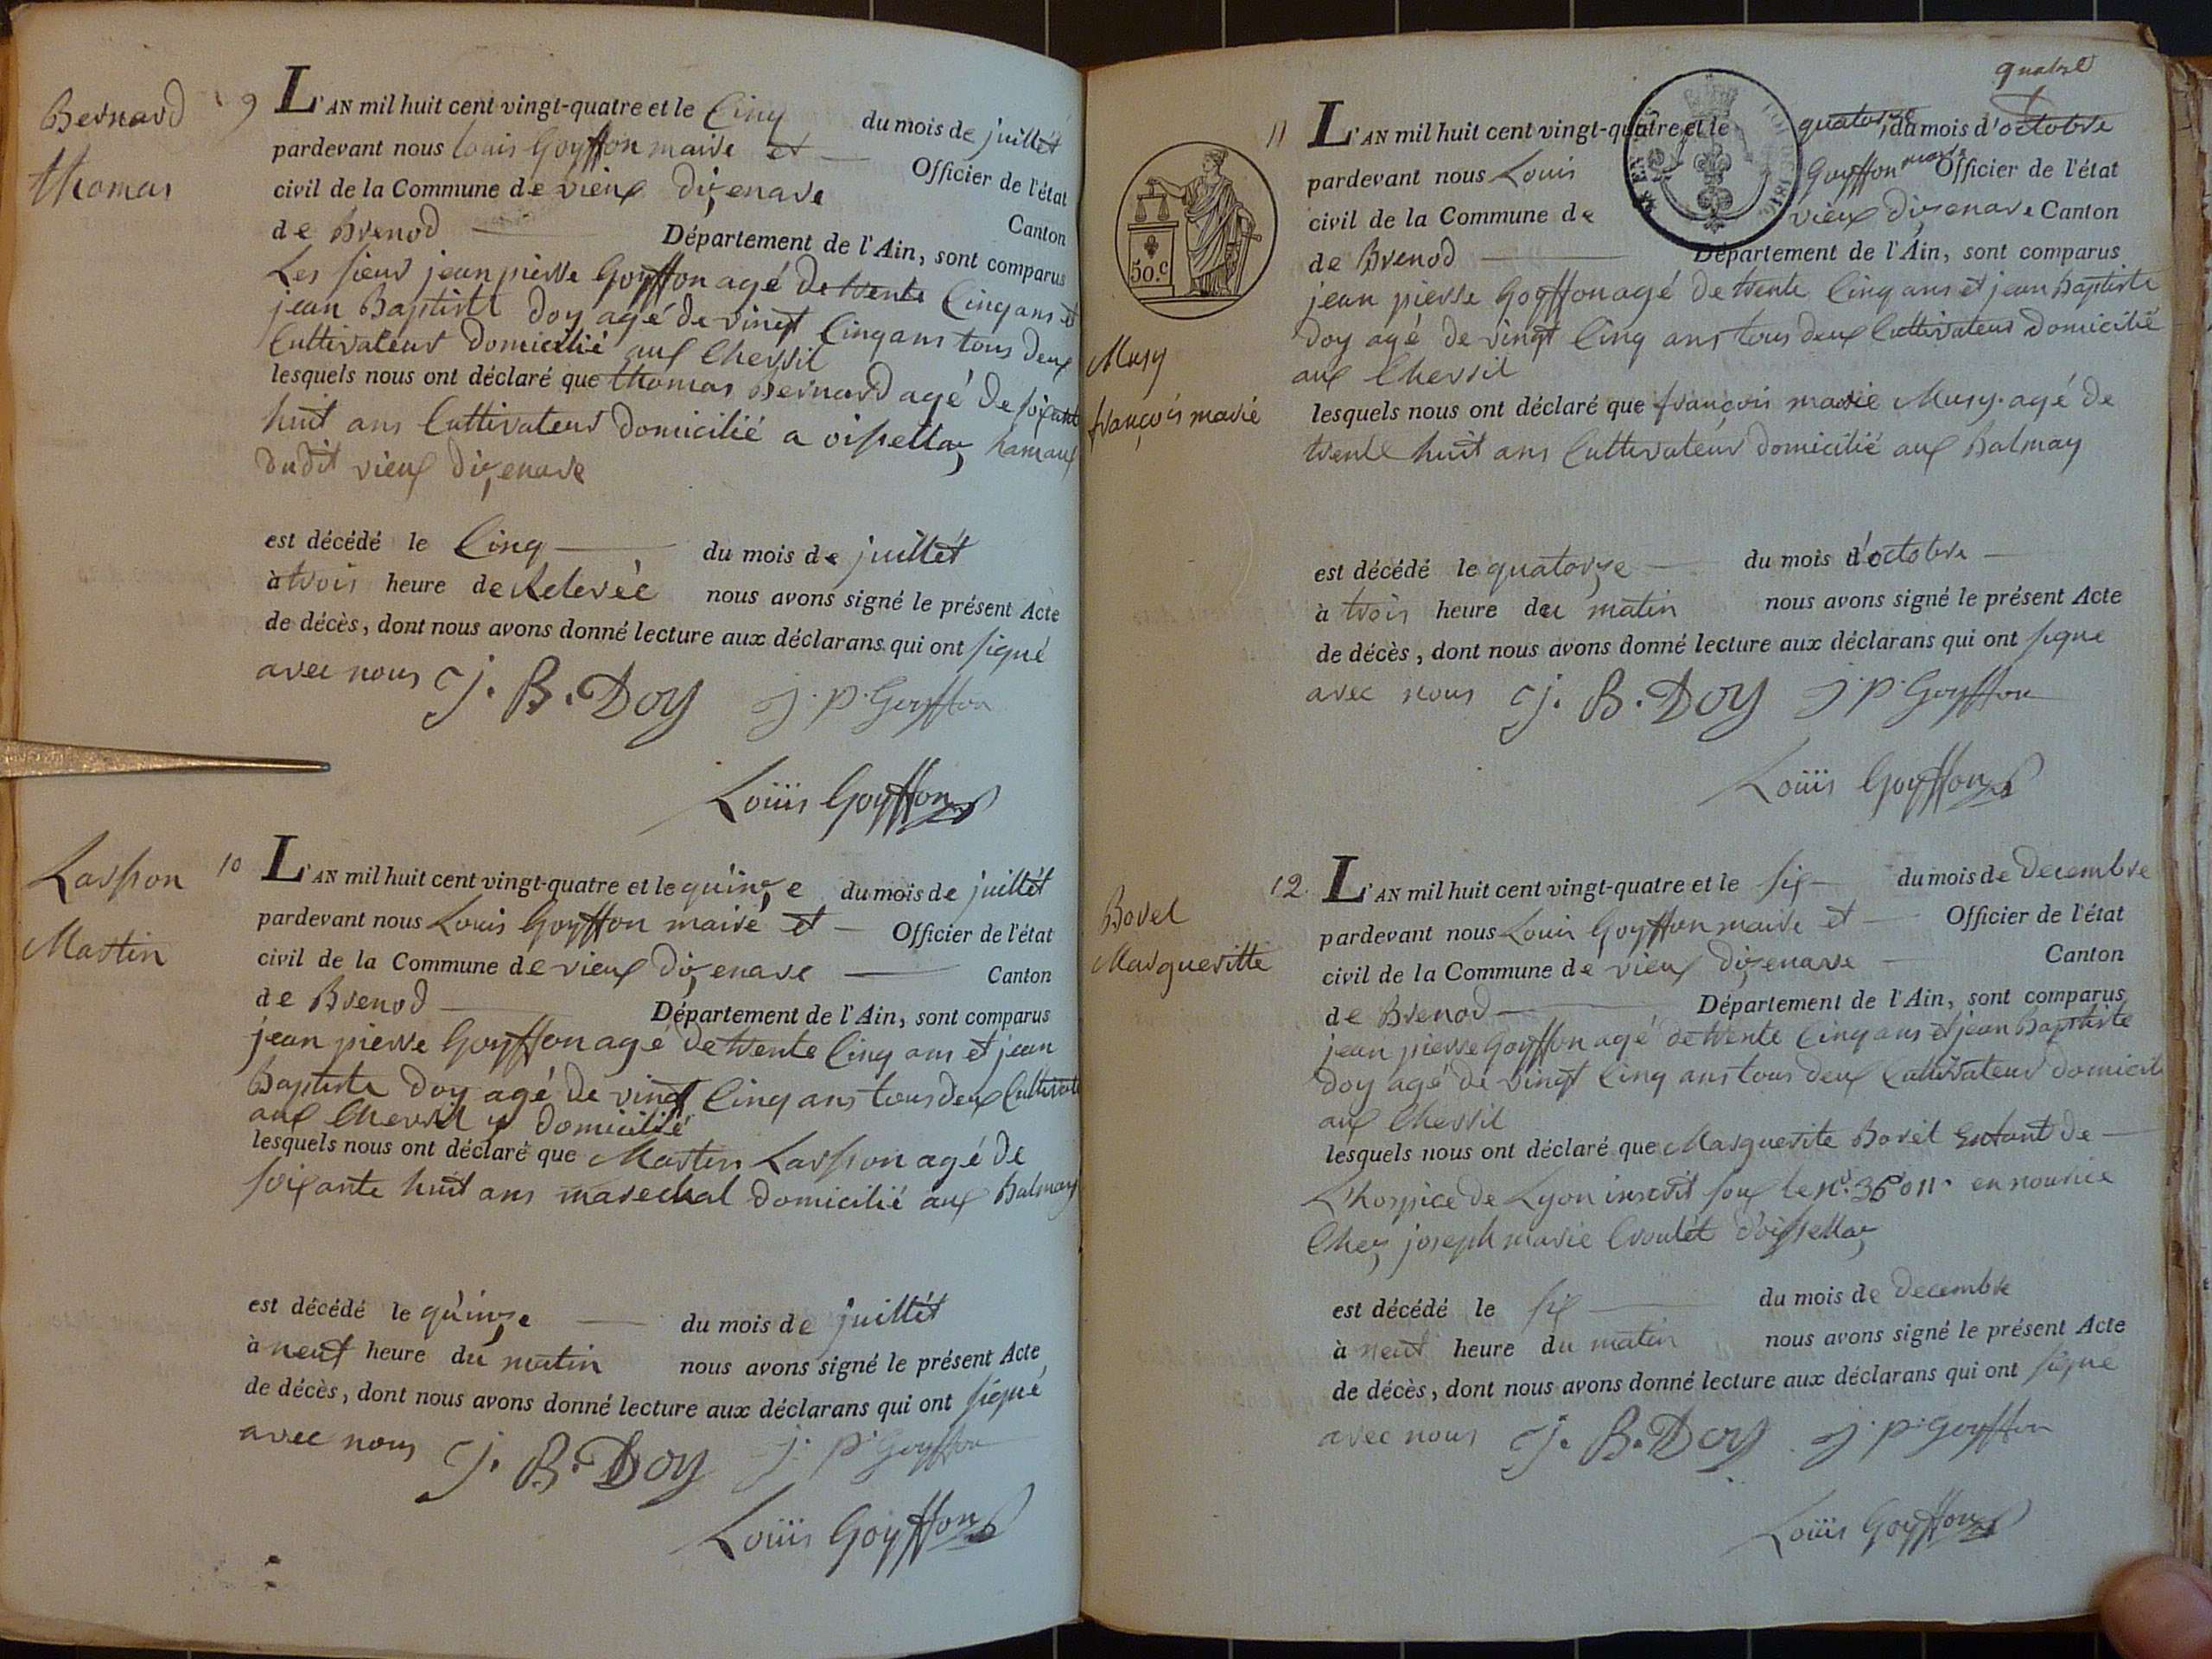 Bernard
thomas
9 L'AN mil huit cent vingt-quatre et le Cinq du mois de juillét
pardevant nous louis Goyffon maire et Officier de l'état
civil de la Commune de vieux dizenave Canton
de Brenod Département de l'Ain, sont comparus
Les sieur jean pierre Goyffon agé de trente Cinq ans et
jean Baptiste Doy agé de vingt Cinq ans tous deux
Cultivateur domicilié aux Chevril
lesquels nous ont déclaré que thomas Bernard agé de soixante
huit ans Cultivateur domicilié a oissellaz hamaux
dudit vieux dizenave
est décédé le Cinq du mois de juillét
à trois heure de Relevée nous avons signé le présent Acte
de décès, dont nous avons donné lecture aux déclarans qui ont signé
avec nous J. B. Doy j. p. Goyffon
Loüis Goyffon
Martin
10 L'AN mil huit cent vingt-quatre et le quinze du mois de juillét
pardevant nous Louis Goyffon maire et Officier de l'état
civil de la Commune de vieux dizenave Canton
de Brenod Département de l'Ain, sont comparus
jean pierre Goyffon agé de trente Cinq ans et jean
Baptiste doy agé de vingt Cinq ans tous deux
aux Chevril y domicilié
lesquels nous ont déclaré que Martin agé de
soixante huit ans marechal domicilié aux Balmay
est décédé le quinze du mois de juillét
à neuf heure du matin nous avons signé le présent Acte
de décès, dont nous avons donné lecture aux déclarans qui ont signé
avec nous J. B. Doy j. p. Goyffon
Loüis Goyffon
quatre
50.c
Musy
françois marie
11 L'AN mil huit cent vingt-quatre et le quatorze du mois d'octobre
pardevant nous Louis Goyffon maire Officier de l'état
civil de la Commune de vieux dizenave Canton
de Brenod Département de l'Ain, sont comparus
jean pierre Goyffon agé de trente Cinq ans et jean Baptiste
Doy agé de vingt Cinq ans tous deux Cultivateur domicilié
aux Chevril
lesquels nous ont déclaré que françois marie Musy agé de
trente huit ans Cultivateur domicilié aux Balmay
est décédé le quatorze du mois d'octobre
à trois heure du matin nous avons signé le présent Acte
de décès, dont nous avons donné lecture aux déclarans qui ont signé
avec nous J. B. Doy j p Goyffon
Loüis Goyffon
Bovel
Margueritte
12 L'AN mil huit cent vingt-quatre et le six du mois de decembre
pardevant nous Louis Goyffon maire et Officier de l'état
civil de la Commune de vieux dizenave Canton
de Brenod Département de l'Ain, sont comparus
jean pierre Goyffon agé de trente Cinq ans et jean Baptiste
Doy agé de vingt Cinq ans tous deux Cultivateur domicil
aux Chevril
lesquels nous ont déclaré que Marguerite Bovel Enfant de
L'hospice de Lyon inscrit soux le n°. en nourice
Chez joseph marie d'oissellaz
est décédé le six du mois de decembre
à neuf heure du matin nous avons signé le présent Acte
de décès, dont nous avons donné lecture aux déclarans qui ont signé
avec nous J. B. Doy j. p. goyffon
Loüis Goyffon